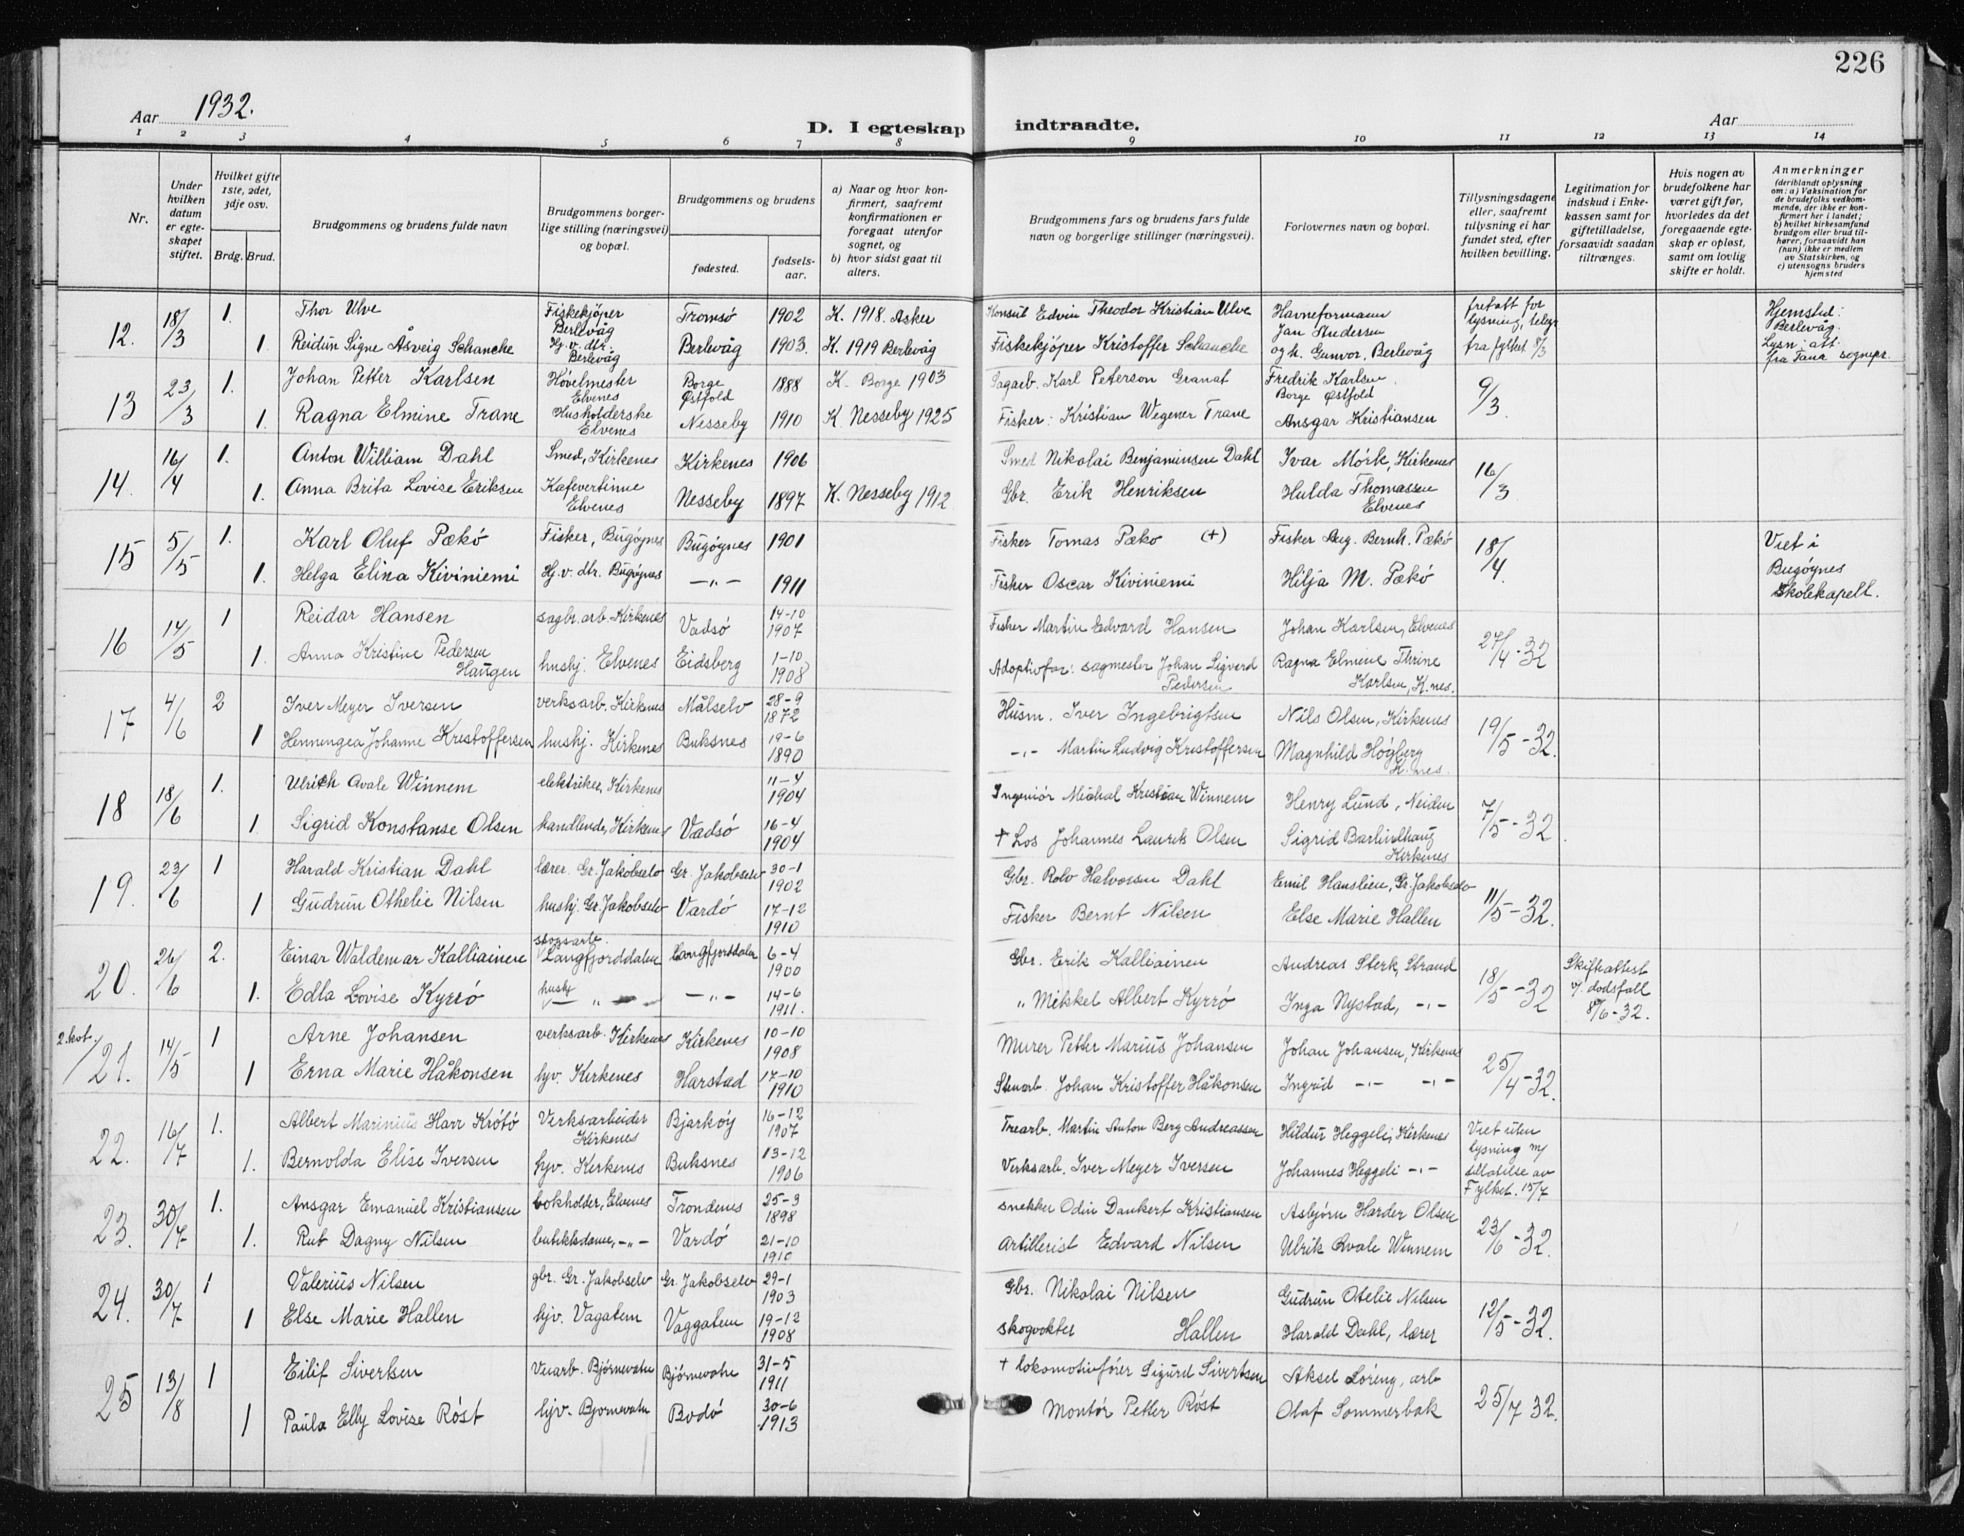 226
Aar 1932.
D. I egteskap indtraadte.
Aar
1 2 3 4 5 6 7 8 9 10 11 12 13 14
Nr.
Under hvilken datum er egteskapet stiftet.
Hvilket gifte 1ste, 2det, 3dje osv.
Brdg. Brud.
Brudgommens og brudens fulde navn
Brudgommens borgerlige stilling (næringsvei) og bopæl.
Brudgommens og brudens
fødested.
fødselsaar.
a) Naar og hvor konfirmert, saafremt konfirmationen er foregaat utenfor sognet, og
b) hvor sidst gaat til alters.
Brudgommens fars og brudens fars fulde navn og borgerlige stillinger (næringsvei).
Forlovernes navn og bopæl.
Tillysningsdagene eller, saafremt tillysning ei har fundet sted, efter hvilken bevilling.
Legitimation for indskud i Enkekassen samt for giftetilladelse, forsaavidt saadan tiltrænges.
Hvis nogen av brudefolkene har været gift før, hvorledes da det foregaaende egteskap er opløst, samt om lovlig skifte er holdt.
Anmerkninger
(deriblandt oplysning om: a) Vaksination for de brudefolks vedkommende, der ikke er konfirmert her i landet; b) hvilket kirkesamfund brudgom eller brud tilhører, forsaavidt han (hun) ikke er medlem av Statskirken, og c) utensogns bruders hjemsted
12. 18/3 1. Thor Ulve Fiskekjøper Berlevåg Tromsø 1902 K. 1918. Asker Konsul Edvin Theodor Kristian Ulve Havneformann Jan Andersen fritatt for lysning, telegr. Hjemsted: Berlevåg.
1. Reidun Signe Åsveig Schanche Hj. v. dtr. Berlevåg Berlevåg 1903. K. 1919 Berlevåg Fiskekjøper Kristoffer Schanche og h. Gunvor, Berlevåg fra fylket 8/3 Lysn. att. fra Tana sognepr.
13 23/3 1. Johan Petter Karlsen Høvelmester Elvenes Borge Østfold 1888 K. Borge 1903 Sagarb. Karl Peterson Granat Fredrik Karlsen Borge Østfold 9/3
1. Ragna Elmine Trane Husholderske Elvenes Nesseby 1910 K. Nesseby 1925 Fisker: Kristian Wegener Trane Ansgar Kristiansen
14. 16/4 1. Anton William Dahl Smed, Kirkenes Kirkenes 1906 Smed Nikolai Benjaminsen Dahl Ivar Mørk, Kirkenes 16/3
1. Anna Brita Lovise Eriksen Kafevertinne Elvenes Nesseby 1897 K. Nesseby 1912 Gbr. Erik Henriksen Hulda Thomassen Elvenes
15 5/5 1. Karl Oluf Pækø Fisker, Bugøynes Bugøynes 1901 Fisker Tomas Pæko (+) Fisker Aug. Bernh. Pækø 18/4 Viet i Bugøynes skolekapell.
1. Helga Elina Kiviniemi Hj. v. dtr. Bugøynes —„— 1911 Fisker Oscar Kiviniemi Hilja M. Pækø
16 14/5 1 Reidar Hansen sagbr. arb. Kirkenes Vadsø 14-10 1907 Fisker Martin Edvard Hansen Johan Karlsen, Elvenes 27/4-32
1. Anna Kristine Pedersen Haugen hushj. Elvenes Eidsberg 1-10 1908 Adoptivfar: sagmester Johan Sigverd Pedersen Ragna Elmine Thrine Karlsen, K.nes.
17 4/6 2 Iver Meyer Iversen verksarb. Kirkenes Målselv 28-9 1872 Husm. Iver Ingebrigtsen Nils Olsen, Kirkenes 19/5-32.
1 Henningea Johanne Kristoffersen hushj. Kirkenes Buksnes 19-6 1890 —„— Martin Ludvig Kristoffersen Magnhild Høgberg K.nes.
18 18/6 1. Ulrich Avale Winnem elektriker, Kirkenes 11-4 1904 Ingeniør Michal Kristian Winnem Henry Lund, Neiden 7/5-32
1 Sigrid Konstanse Olsen handlende, Kirkenes Vadsø 16-4 1904 + Los Johannes Laurits Olsen Sigrid Barlindhaug Kirkenes
19. 23/6 1 Harald Kristian Dahl lærer Gr. Jakobselv Gr. Jakobselv 30-1 1902 Gbr. Rolv Halvorsen Dahl Emil Hanslien, Gr. Jakobselv 11/5-32.
1 Gudrun Othelie Nilsen hushj. Gr. Jakobselv Vardø 17-12 1910 Fisker Bernt Nilsen Else Marie Hallen
20. 26/6 2. Einar Waldemar Kalliainen skogsarb. Langfjorddalen Langfjorddalen 6-4 1900 Gbr. Erik Kalliainen Andreas Sterk, Strand 18/5-32 Skifteattest v/ dødsfall 8/6-32.
1. Edla Lovise Kyrrø hushj —„— —„— 14-6 1911. „ Mikkel Albert Kyrrø Inga Nystad, —„—
2. kot. 21. 14/5 1 Arne Johansen verksarb. Kirkenes Kirkenes 10-10 1908 Murer Petter Marius Johansen Johan Johansen, Kirkenes 25/4-32.
1 Erna Marie Håkonsen hjv. Kirkenes Harstad 17-10 1910 Stenarb. Johan Kristoffer Håkonsen Ingrid —„— —„—
22. 16/7 1. Albert Marinius Harr Krøtø Verksarbeider Kirkenes Bjarkøy 16-12 1907 Trearb. Martin Anton Berg Andreassen Hildur Heggeli, Kirkenes Viet uten lysning m/ tillatelse av Fylket. 15/7
1. Bernolda Elise Iversen hjv. Kirkenes Buksnes 13-12 1906 Verksarb. Iver Meyer Iversen Johannes Heggeli —„—
23. 30/7 1. Ansgar Emanuel Kristiansen bokholder, Elvenes Trondenes 25-3 1898 snekker Odin Dankert Kristiansen Asbjørn Harder Olsen 23/6-32.
1. Rut Dagny Nilsen butikkdame, —„— Vardø 21-10 1910 Artillerist Edvard Nilsen Ulrik Avale Winnem
24. 30/7 1 Valerius Nilsen gbr. Gr. Jakobselv Gr. Jakobselv 29-1 1903 Gbr. Nikolai Nilsen Gudrun Otelie Nilsen 12/5-32.
1 Else Marie Hallen hjv. Vagatem Vaggatem 19-12 1908 skogvokter Hallen Harald Dahl, lærer
25 13/8 1 Eilif Sivertsen Veiarb. Bjørnevatn Bjørnevatn 31-5 1911 + lokomotivfører Sigurd Sivertsen Aksel Loreng, arb 25/7 32.
1 Paula Elly Lovise Røst hjv. Bjørnevatn Bodø 30-6 1913 Montør Petter Røst Olaf Sommerbak